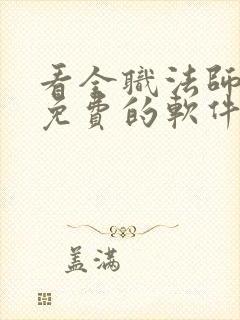 看全職法師
免費的軟件
盖满